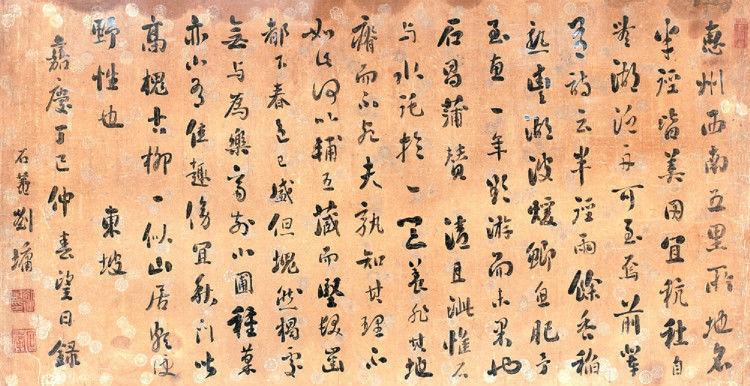 惠州西南五里所地名
半徑皆美田宜秔秫自
豐湖泛舟可至焉前輩
有詩云半徑雨餘香稻
熟豐湖波煖鯽魚肥予
至惠一年欲游而未果也
石菖蒲贊 清且泚惟石
与水託於一盆養非其地
瘠而不死夫孰知其理不
如此何以輔五藏而堅髮齒
都下春色已盛但塊然獨處
無与為樂齋前小圃種菜
亦少有佳趣傍宜秋門皆
高槐古柳一似山居頗便
野性也 東坡
嘉慶丁巳仲春望日錄
石菴劉墉